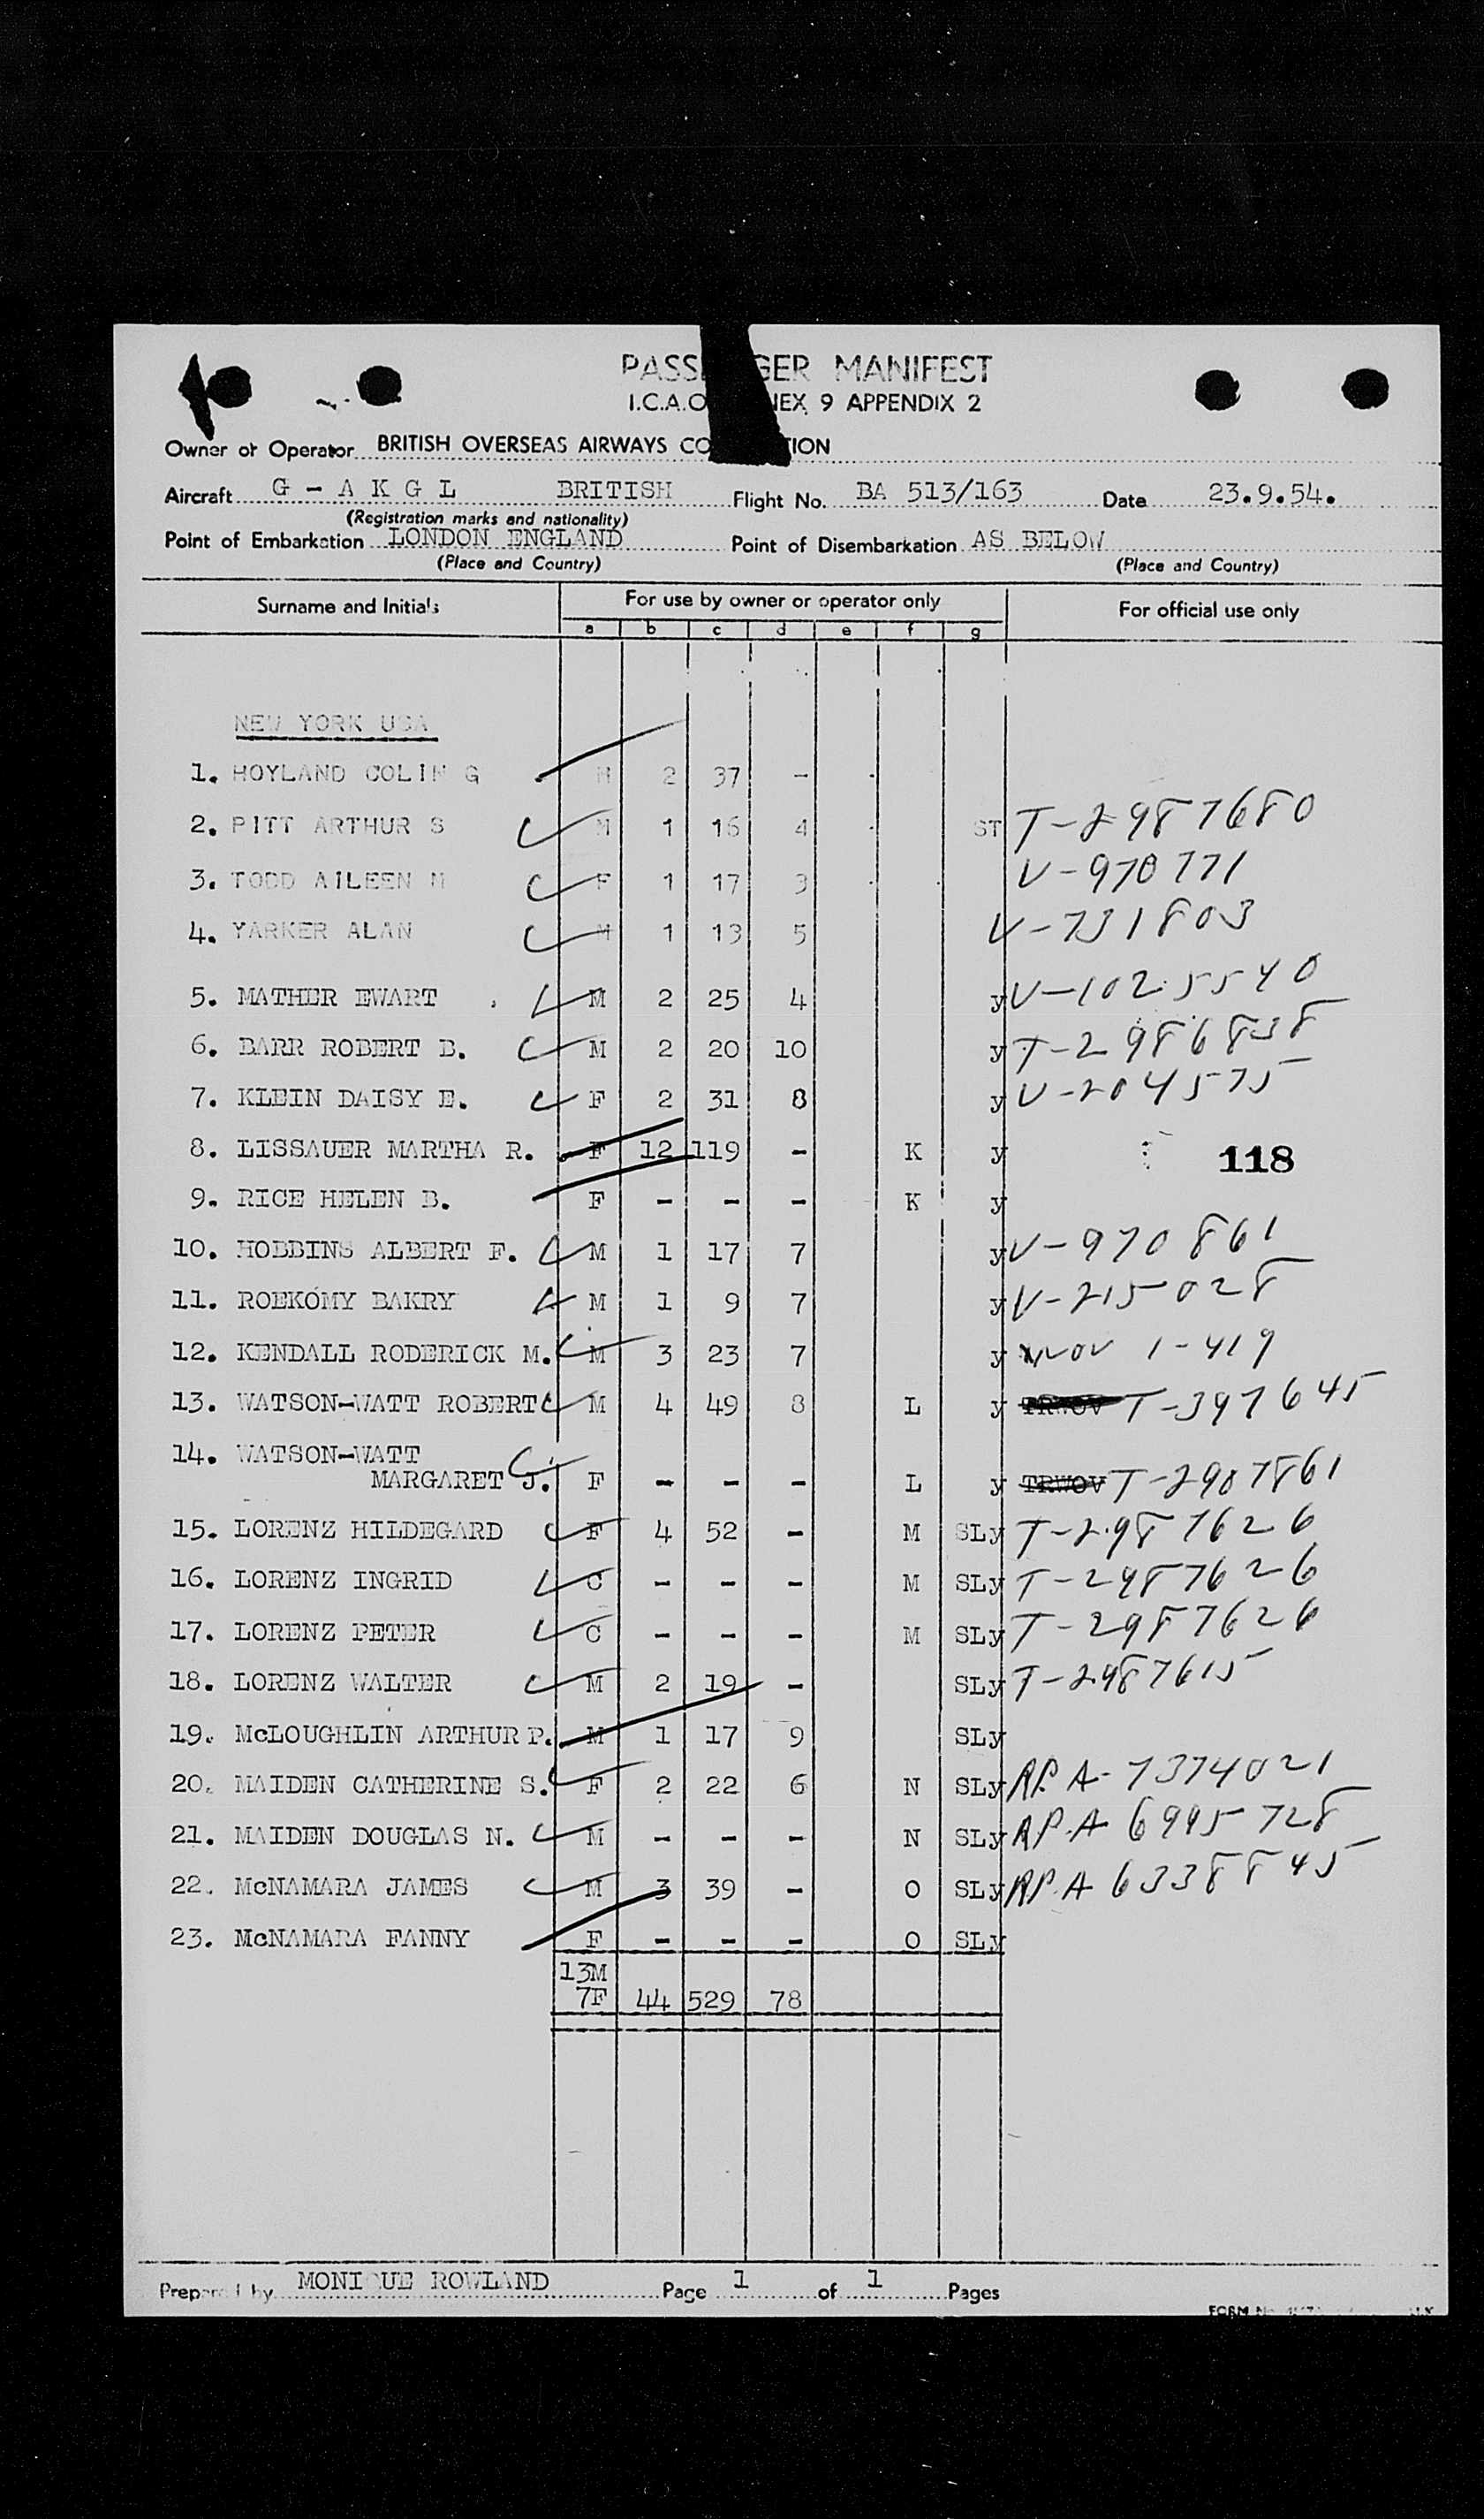 PASS GER MANIFEST
I.C.A.O. NEX 9 APPENDIX 2
Owner or Operator BRITISH OVERSEAS AIRWAYS CO TION
Aircraft G - A K G L BRITISH Flight No. BA 513/163 Date 23.9.54.
(Registration marks and nationality)
Point of Embarkation LONDON ENGLAND Point of Disembarkation AS BELOW
(Place and Country) (Place and Country)
Surname and Initials For use by owner or operator only For official use only
a b c d e f g
NEW YORK USA
1. HOYLAND COLIN G M 2 37 -
2. PITT ARTHUR S M 1 16 4 ST T-2987680
3. TODD AILEEN M F 1 17 3 V-970771
4. YARKER ALAN M 1 13 5 V-731803
5. MATHER EWART M 2 25 4 y V-1025540
6. BARR ROBERT B. M 2 20 10 y T-2986838
7. KLEIN DAISY E. F 2 31 8 y V-204575
8. LISSAUER MARTHA R. F 12 119 - K y 118
9. RICE HELEN B. F - - - K y
10. HOBBINS ALBERT F. M 1 17 7 y V-970861
11. ROEKOMY BAKRY M 1 9 7 y V-215028
12. KENDALL RODERICK M. M 3 23 7 y WOV 1-419
13. WATSON-WATT ROBERT M 4 49 8 L y TRWOV T-397645
14. WATSON-WATT
MARGARET J. F - - - L y TRWOV T-2987861
15. LORENZ HILDEGARD F 4 52 - M SLy T-2987626
16. LORENZ INGRID C - - - M SLy T-2987626
17. LORENZ PETER C - - - M SLy T-2987626
18. LORENZ WALTER M 2 19 - SLy T-2987615
19. McLOUGHLIN ARTHUR P. M 1 17 9 SLy
20. MAIDEN CATHERINE S. F 2 22 6 N SLy RP.A-7374021
21. MAIDEN DOUGLAS N. M - - - N SLy RP.A 6995728
22. McNAMARA JAMES M 3 39 - O SLy RP.A 6338845
23. McNAMARA FANNY F - - - O SLy
13M
7F 44 529 78
Prepared by MONIQUE ROWLAND Page 1 of 1 Pages
FORM